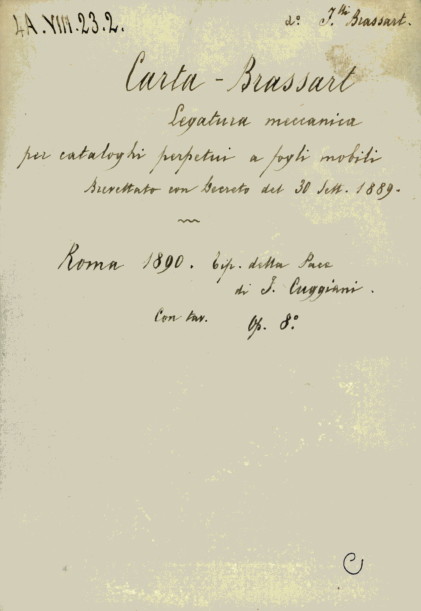 4A.VIII.23.2.
d.° F.lli Brassart.
Carta - Brassart
Legatura meccanica
per cataloghi perpetui a fogli mobili
Brevettato con Decreto del 30 Sett. 1889.
Roma 1890. Tip. della Pace
di F. Cuggiani.
Con tav. Op. 8.°
C